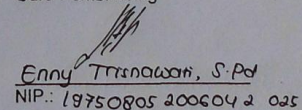 Enny Trisnawati, S.Pd
NIP.: 19750805 200604 2 025